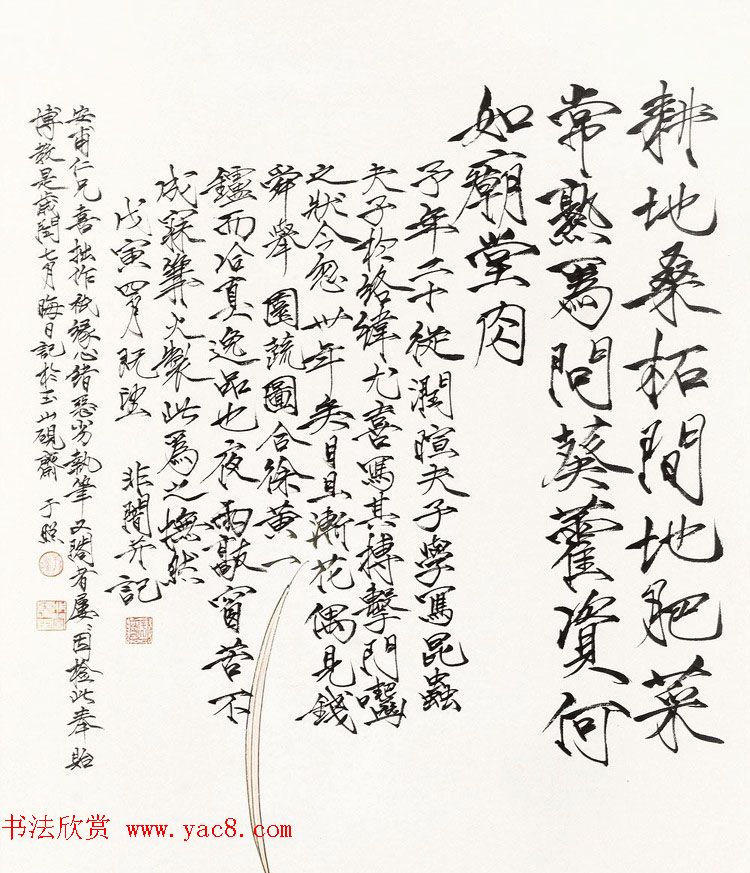 耕地桑柘間地肥菜
常熟為問葵藿資何
如廟堂肉
予年二十從潤暄夫子學寫昆蟲
夫子於絡緯尤喜寫其搏擊鬥嚙
之狀今忽卅年矣目且漸花偶見錢
舜舉園蔬圖合徐黃一
鑪而冶真逸品也夜雨敲窗苦不
成寐篝火製此為之憮然
戊寅四月既望 非闇并記
安甫仁兄喜拙作祇緣心緒恶劣執筆又閒有屢因檢此奉貽
博教是歲閏七月晦日記於玉山硯齋 于照
书法欣赏 www.yac8.com